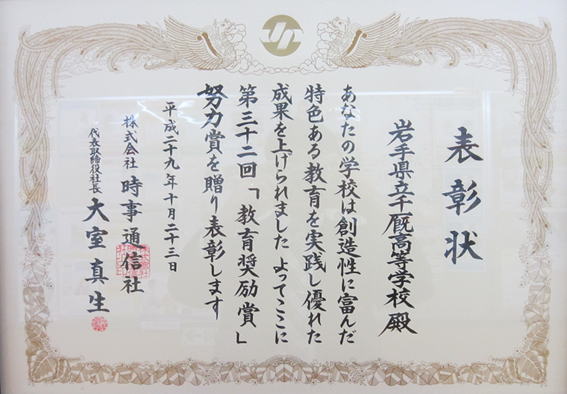 表彰状
岩手県立千厩高等学校殿
あなたの学校は創造性に富んだ
特色ある教育を実践し優れた
成果を上げられました よってここに
第三十二回「教育奨励賞」
努力賞を贈り表彰します
平成二十九年十月二十三日
株式会社 時事通信社
代表取締役社長 大室真生